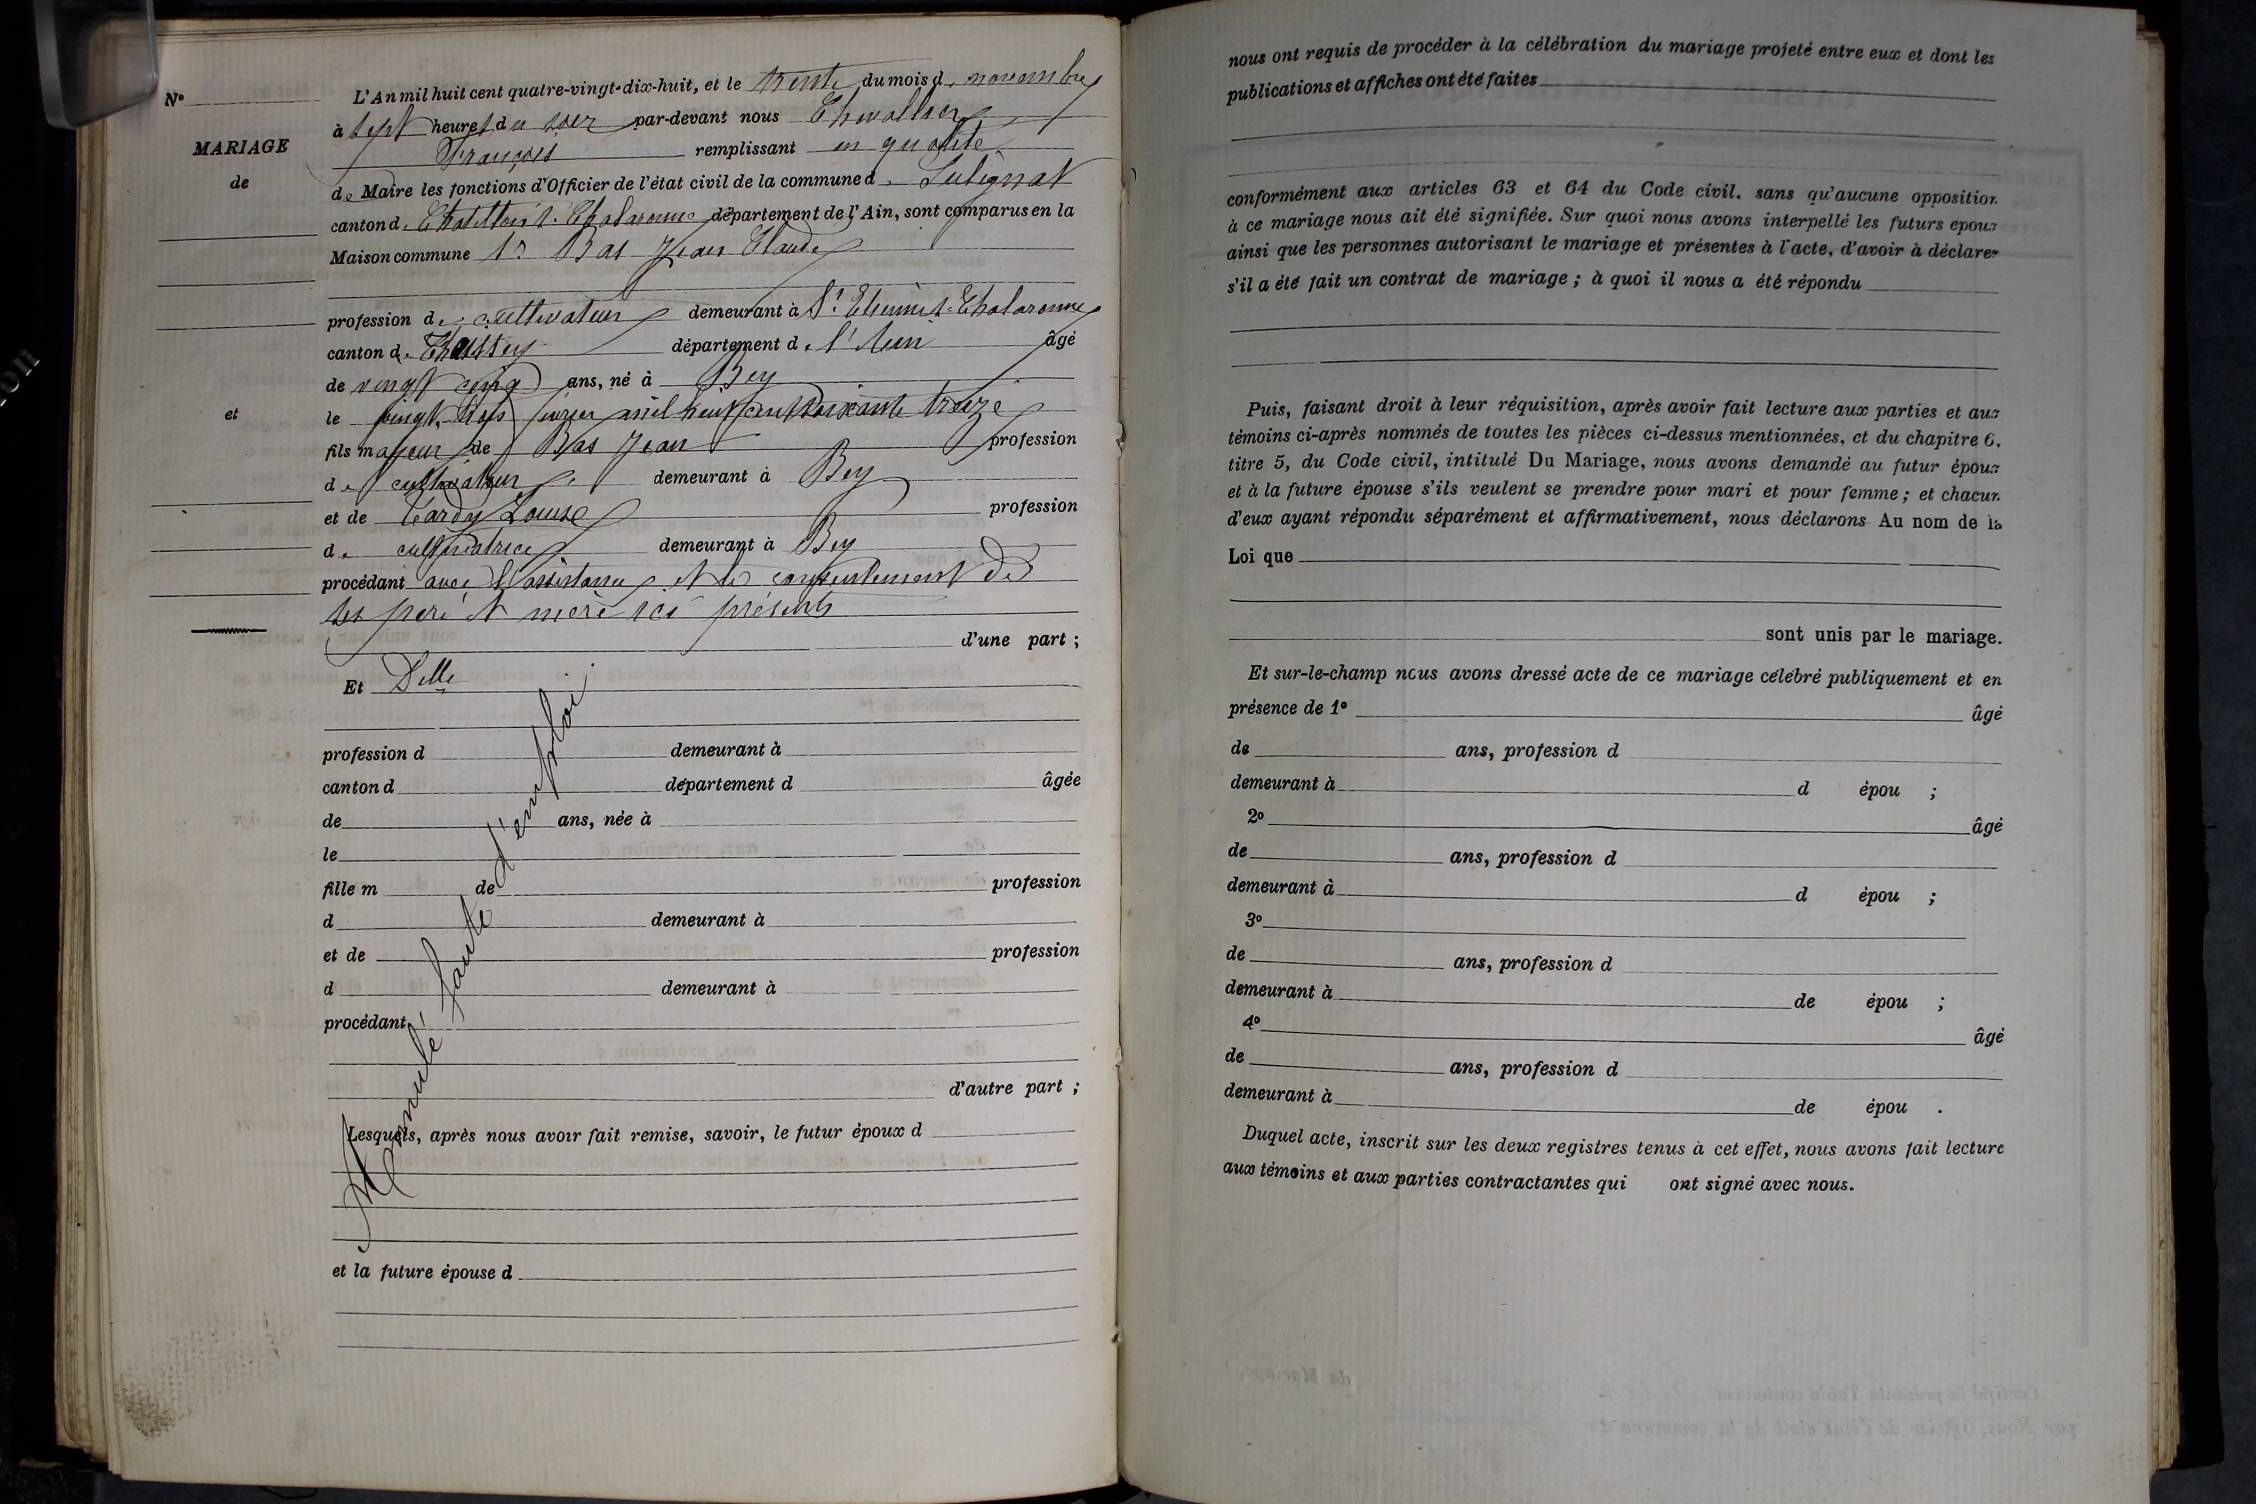 N°
MARIAGE
de
et
L'An mil huit cent quatre-vingt-dix-huit, et le trente du mois de novembre
à sept heures du soir par-devant nous Chevallier
François remplissant en qualité
de Maire les fonctions d'Officier de l'état civil de la commune de Sulignat
canton de Chatillon s. Chalaronne département de l'Ain, sont comparus en la
Maison commune 1° Bas Jean Claude
profession de cultivateur demeurant à St. Etienne s. Chalaronne
canton de Thoissey département de l'Ain âgé
de vingt cinq ans, né à Bey
le vingt trois février mil huit cent soixante treize
fils majeur de Bas Jean profession
de cultivateur demeurant à Bey
et de Tardy Louise profession
de cultivatrice demeurant à Bey
procédant avec l'assistance et le consentement de
ses père et mère ici présents
d'une part ;
Et Delle
profession d demeurant à
canton d département d âgée
de ans, née à
le
fille m de profession
d demeurant à
et de profession
d demeurant à
procédant
d'autre part ;
Lesquels, après nous avoir fait remise, savoir, le futur époux d
et la future épouse d
Annulé faute d'emploi
nous ont requis de procéder à la célébration du mariage projeté entre eux et dont les
publications et affiches ont été faites
conformément aux articles 63 et 64 du Code civil. sans qu'aucune opposition
à ce mariage nous ait été signifiée. Sur quoi nous avons interpellé les futurs epoux
ainsi que les personnes autorisant le mariage et présentes à l'acte, d'avoir à déclarer
s'il a été fait un contrat de mariage ; à quoi il nous a été répondu
Puis, faisant droit à leur réquisition, après avoir fait lecture aux parties et aux
témoins ci-après nommés de toutes les pièces ci-dessus mentionnées, et du chapitre 6,
titre 5, du Code civil, intitulé Du Mariage, nous avons demandé au futur époux
et à la future épouse s'ils veulent se prendre pour mari et pour femme ; et chacun
d'eux ayant répondu séparément et affirmativement, nous déclarons Au nom de la
Loi que
sont unis par le mariage.
Et sur-le-champ nous avons dressé acte de ce mariage célébré publiquement et en
présence de 1° âgé
de ans, profession d
demeurant à d épou ;
2° âgé
de ans, profession d
demeurant à d épou ;
3°
de ans, profession d
demeurant à de épou ;
4° âgé
de ans, profession d
demeurant à de épou .
Duquel acte, inscrit sur les deux registres tenus à cet effet, nous avons fait lecture
aux témoins et aux parties contractantes qui ont signé avec nous.